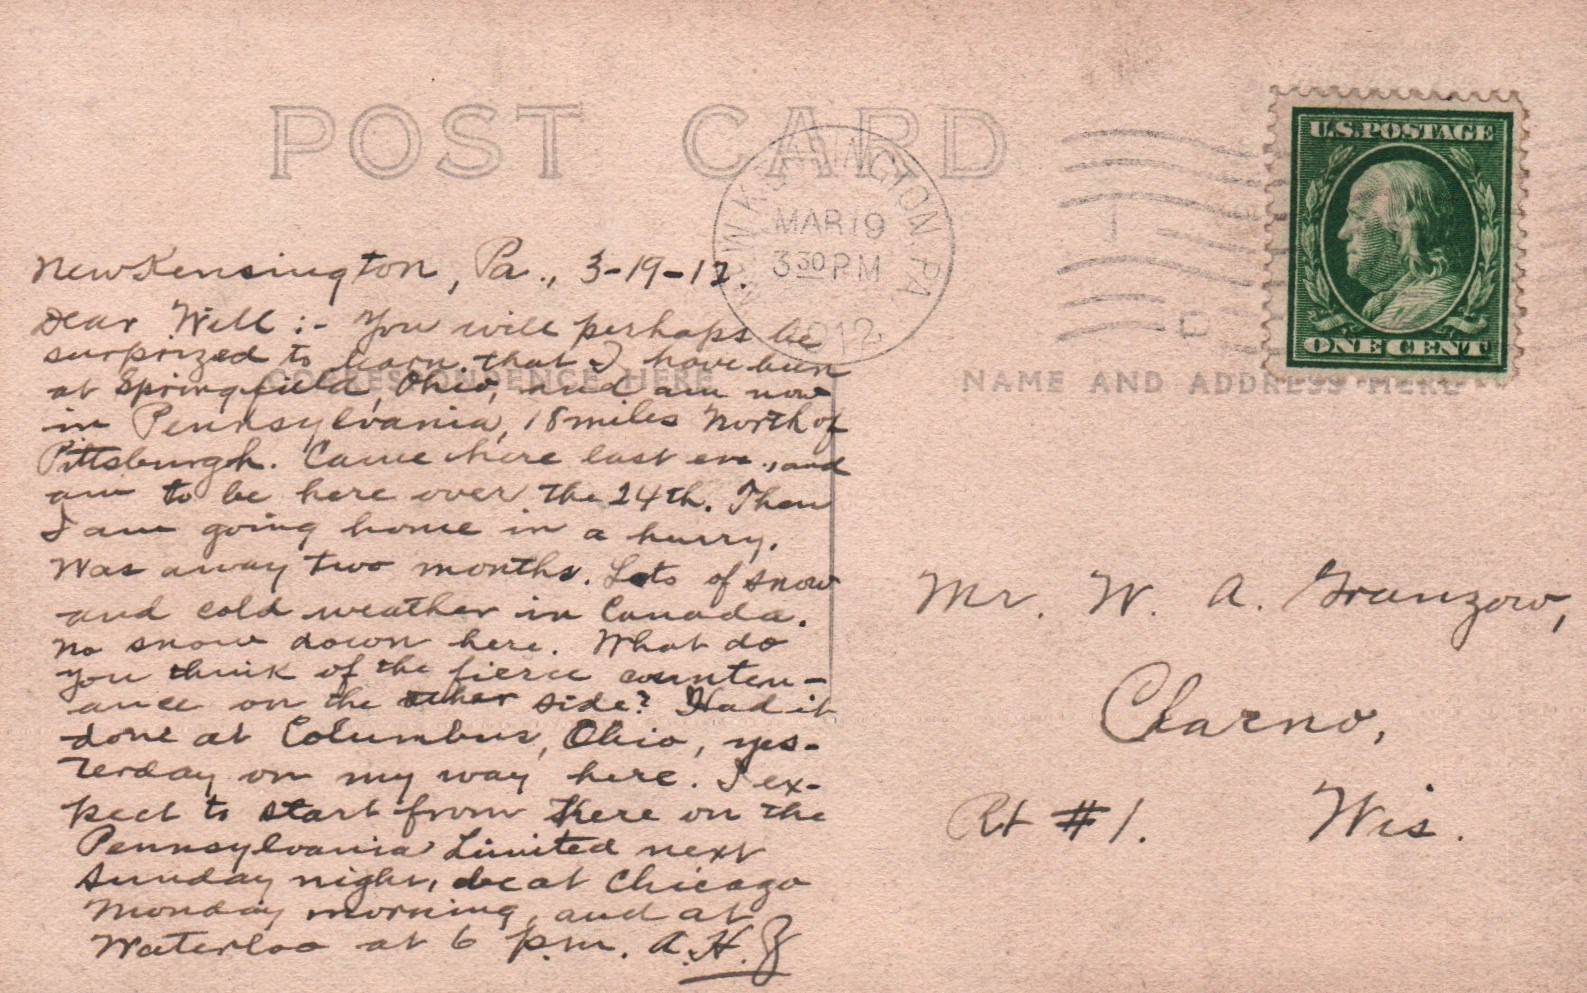 POST CARD
U.S. POSTAGE
ONE CENT
NEW KENSINGTON, PA.
MAR 19
3 30 PM
1912
CORRESPONDENCE HERE
NAME AND ADDRESS HERE
New Kensington, Pa., 3-19-12.
Dear Will :- You will perhaps be
surprized to learn that I have been
at Springfield, Ohio, and am now
in Pennsylvania, 18 miles North of
Pittsburgh. Came here last eve., and
am to be here over the 24th. Then
I am going home in a hurry.
Was away two months. Lots of snow
and cold weather in Canada.
No snow down here. What do
you think of the fierce counten-
ance on the other side? Had it
done at Columbus, Ohio, yes-
terday on my way here. I ex-
pect to start from here on the
Pennsylvania Limited next
Sunday night, be at Chicago
Monday morning, and at
Waterloo at 6 p.m. A.H.
Mr. W. A. Granzow,
Clarno,
Rt #1. Wis.